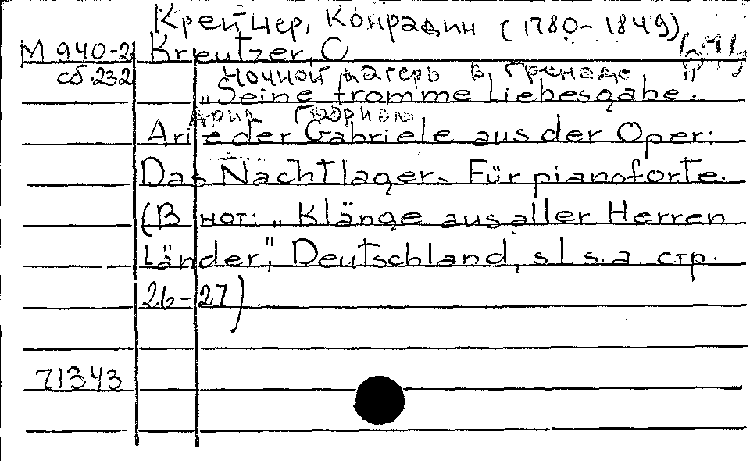 Крейцер, Конрадин (1780-1849)
М 940-2 Kreutzer, C
сб 232 Ночной лагерь в Гренаде
„Seine fromme Liebesgabe.
Ария Габриэли
Arie der Gabriele aus der Oper:
Das Nachtlager. Für pianoforte.
(В нот: „Klänge aus aller Herren
Länder", Deutschland, s.l. s.a. стр.
26-27)
71343